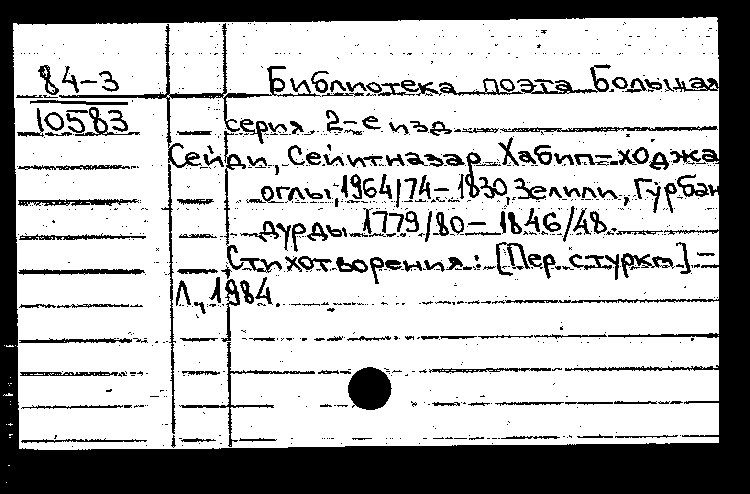 84-3
10583
Библиотека поэта Большая
серия 2-е изд
Сейди, Сейитназар Хабип-ходжа
оглы, 1964/74-1830, Зелили, Гурбан
дурды 1779/80-1846/48.
Стихотворения: [Пер. с туркм] -
Л., 1984.